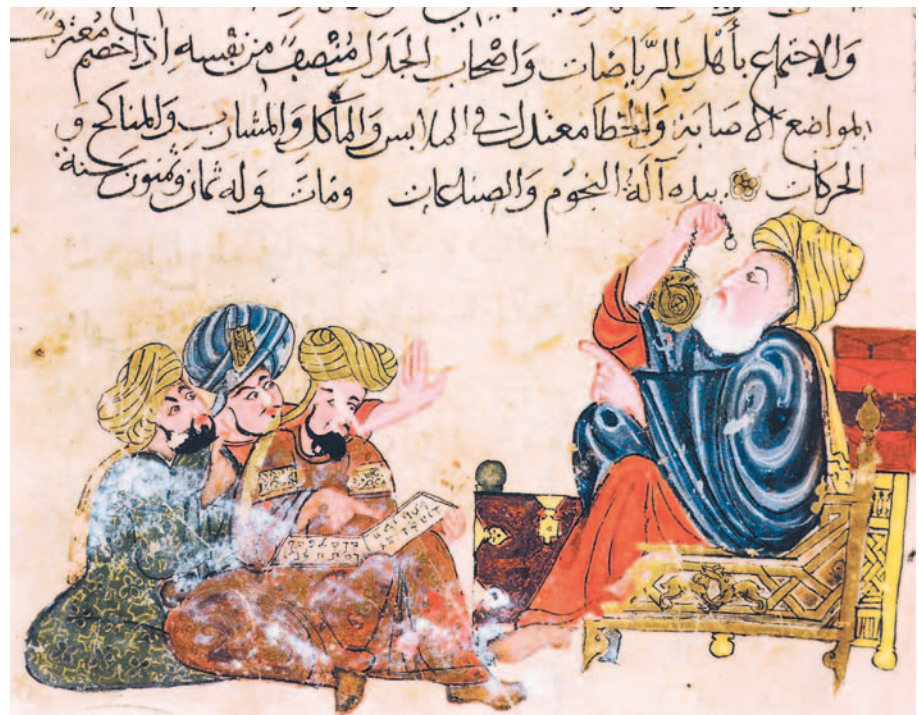 وَالاجتماع بأَهْل الرِّيَاضات وَاصْحاب الجَدَل مُنْصِفٌ من نفْسِهِ اذا خصم معترف
بمواضع الاصَابة وَالخطأ معتدل في الملابس وَالمأكل وَالمشارب وَالمناكح و
الحركات بيده آلة النجوم وَالصناعات وماتَ وَله ثمان وثمنون سنة